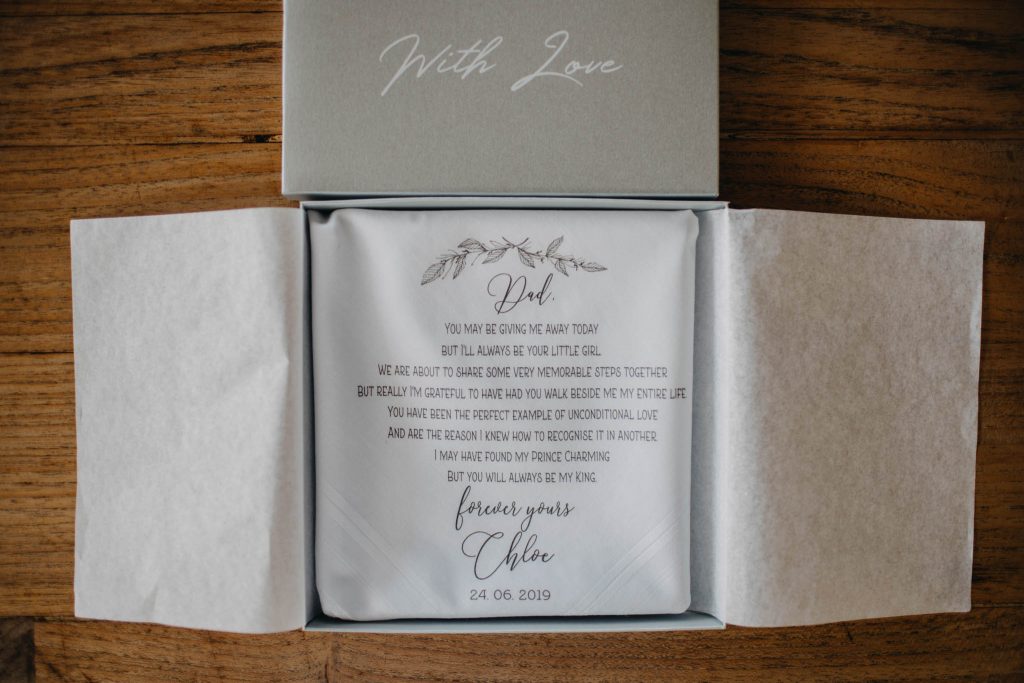 With Love
Dad,
YOU MAY BE GIVING ME AWAY TODAY
BUT I'LL ALWAYS BE YOUR LITTLE GIRL.
WE ARE ABOUT TO SHARE SOME VERY MEMORABLE STEPS TOGETHER
BUT REALLY I'M GRATEFUL TO HAVE HAD YOU WALK BESIDE ME MY ENTIRE LIFE.
YOU HAVE BEEN THE PERFECT EXAMPLE OF UNCONDITIONAL LOVE
AND ARE THE REASON I KNEW HOW TO RECOGNISE IT IN ANOTHER.
I MAY HAVE FOUND MY PRINCE CHARMING
BUT YOU WILL ALWAYS BE MY KING.
forever yours
Chloe
24. 06. 2019